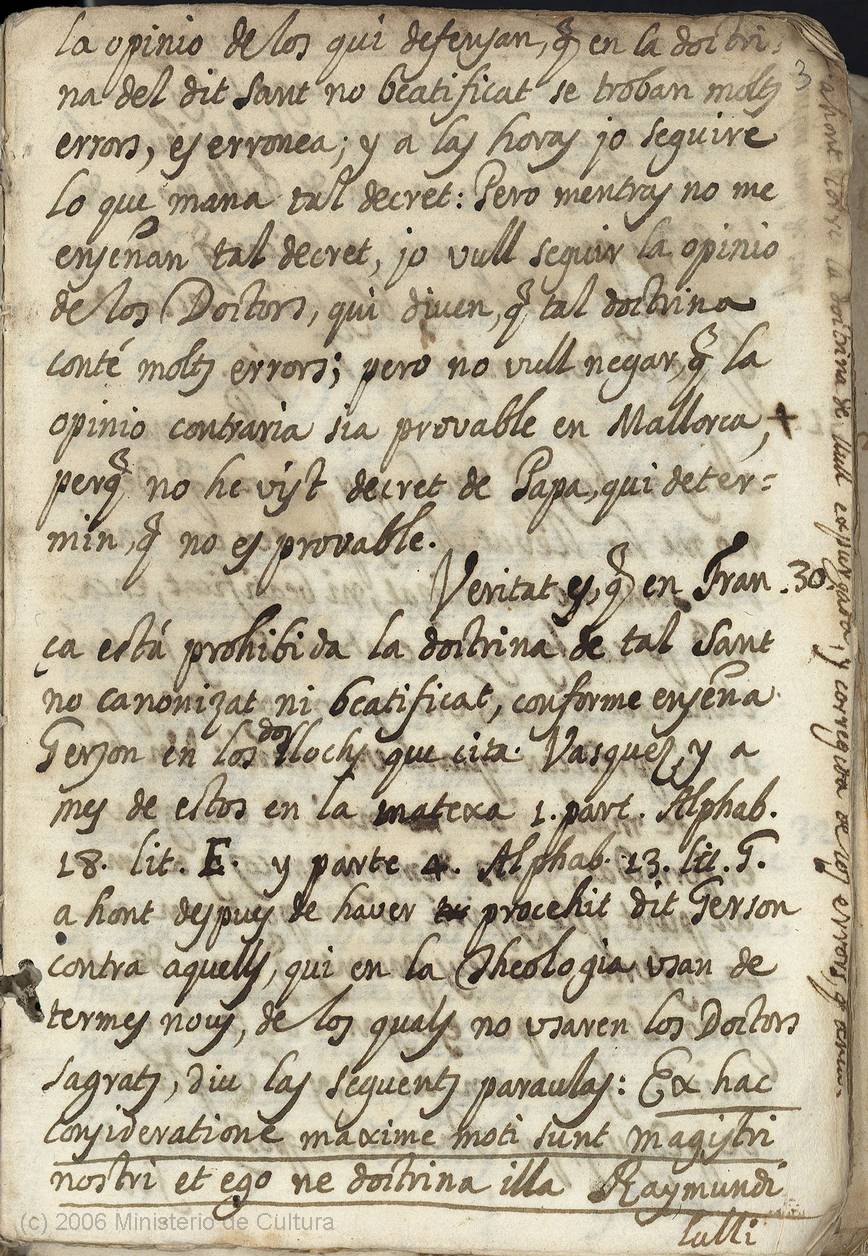 3
la opinio de los qui defensan, q̃ en la doctri-
na del dit Sant no beatificat se troban molts
errors, es erronea; y a las horas jo seguire
lo que mana tal decret: Pero mentras no me
enseñan tal decret, jo vull seguir la opinio
de los Doctors, qui diuen, q̃ tal doctrina
conté molts errors; pero no vull negar, q̃ la
opinio contraria sia provable en Mallorca, +
perq̃ no he vist decret de Papa, qui deter-
min, q̃ no es provable.
Veritat es, q̃ en Fran- 30
ça está prohibida la doctrina de tal Sant
no canonizat ni beatificat, conforme enseña
Gerson en los dos llochs que cita Vasquez, y a
mes de estos en la matexa 1. part. Alphab.
18. lit. E. y parte 4. Alphab. 13. lit. G.
a hont despues de haver procehit dit Gerson
contra aquells, qui en la Theologia usan de
termes nous, de los quals no usaren los Doctors
sagrats, diu las seguents paraulas: Ex hac
consideratione maxime moti sunt magistri
nostri et ego ne doctrina illa Raymundi
Lulli
a hont la doctrina de Llull y correctora de los errors, q̃
(c) 2006 Ministerio de Cultura